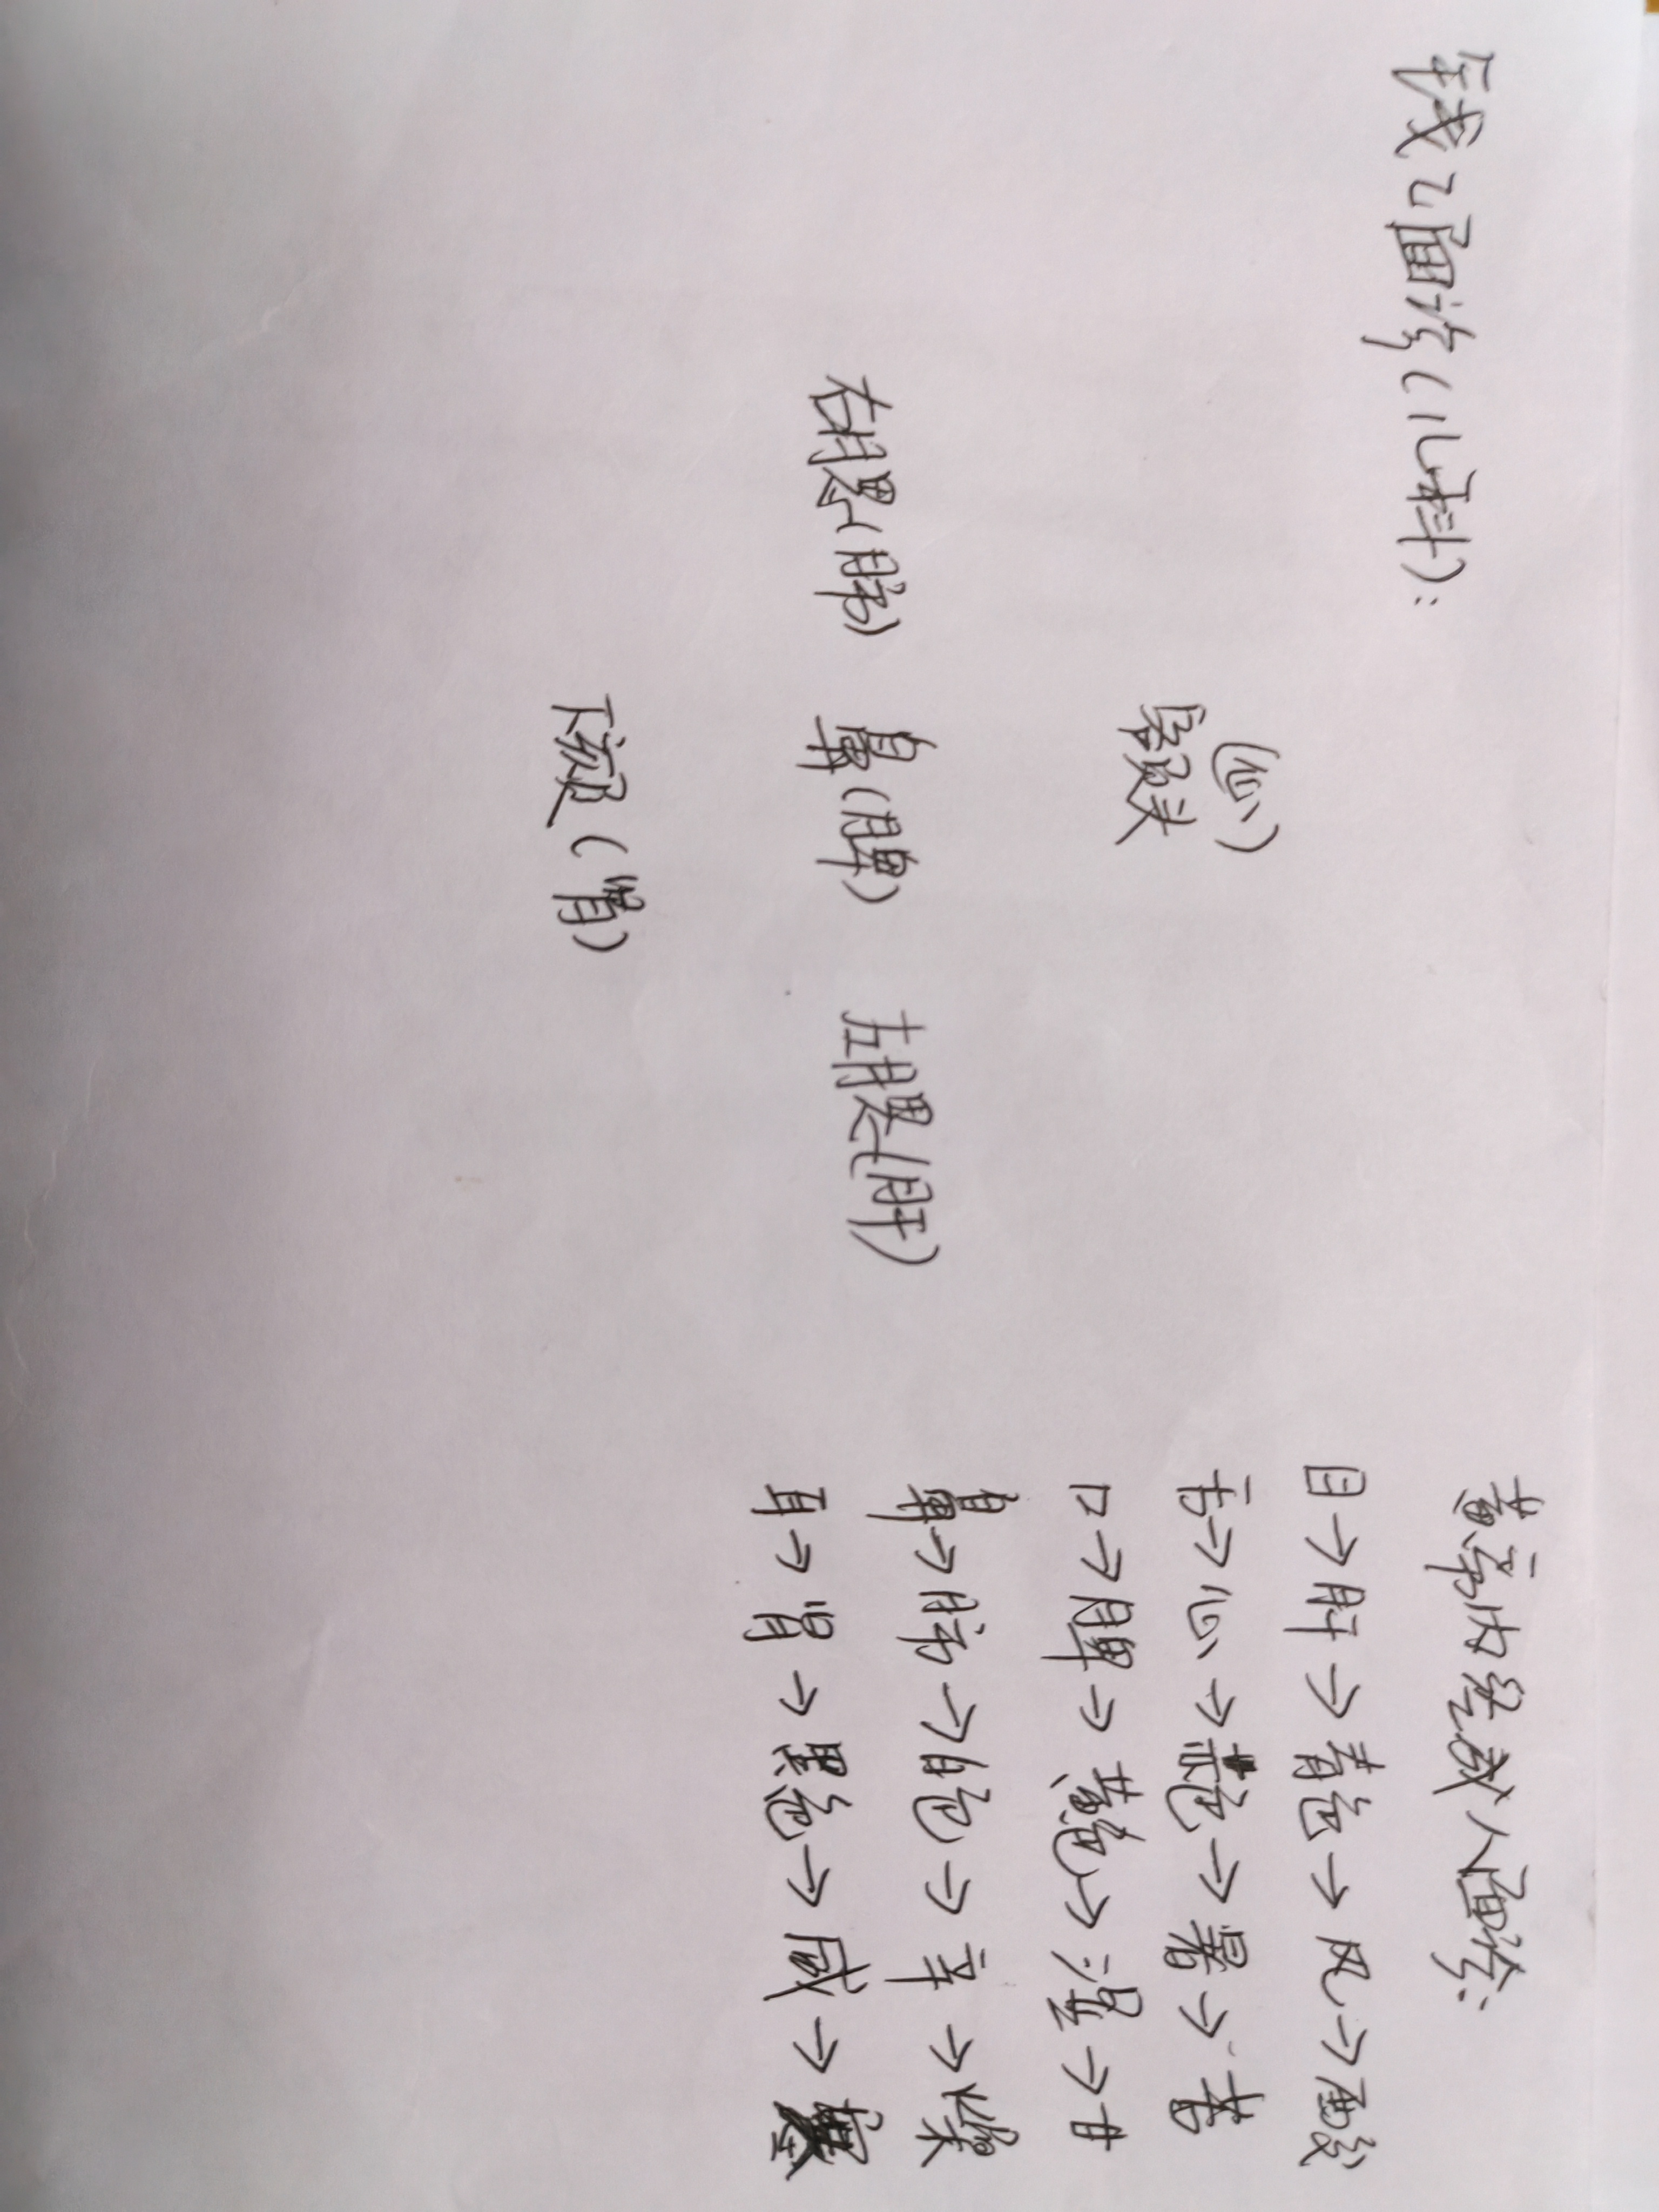 钱乙面诊(儿科):
(心)
额头
右腮(肺) 鼻(脾) 左腮(肝)
下颏(肾)
黄帝内经成人面诊:
目→肝→青色→风→酸
舌→心→赤色→暑→苦
口→脾→黄色→湿→甘
鼻→肺→白色→辛→燥
耳→肾→黑色→咸→寒